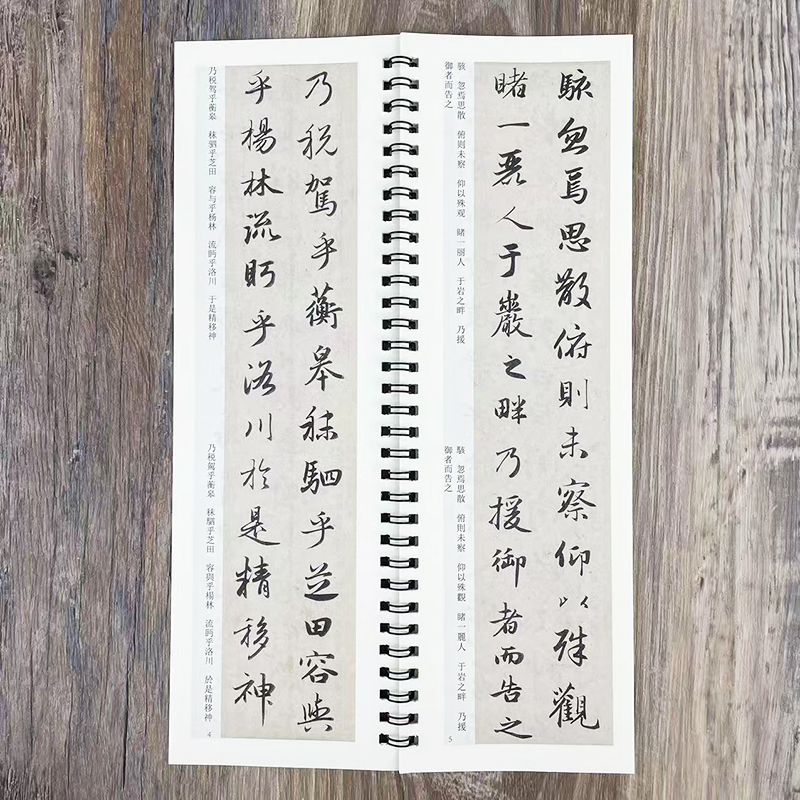 乃税駕乎蘅皋秣駟乎芝田容與
乎楊林流眄乎洛川於是精移神
乃税驾乎蘅皋 秣驷乎芝田 容与乎杨林 流眄乎洛川 于是精移神
乃税駕乎蘅皋 秣駟乎芝田 容與乎楊林 流眄乎洛川 於是精移神
4
駭忽焉思散俯則未察仰以殊觀
睹一麗人于巖之畔乃援御者而告之
骇 忽焉思散 俯则未察 仰以殊观 睹一丽人 于岩之畔 乃援
御者而告之
駭 忽焉思散 俯則未察 仰以殊觀 睹一麗人 于岩之畔 乃援
御者而告之
5